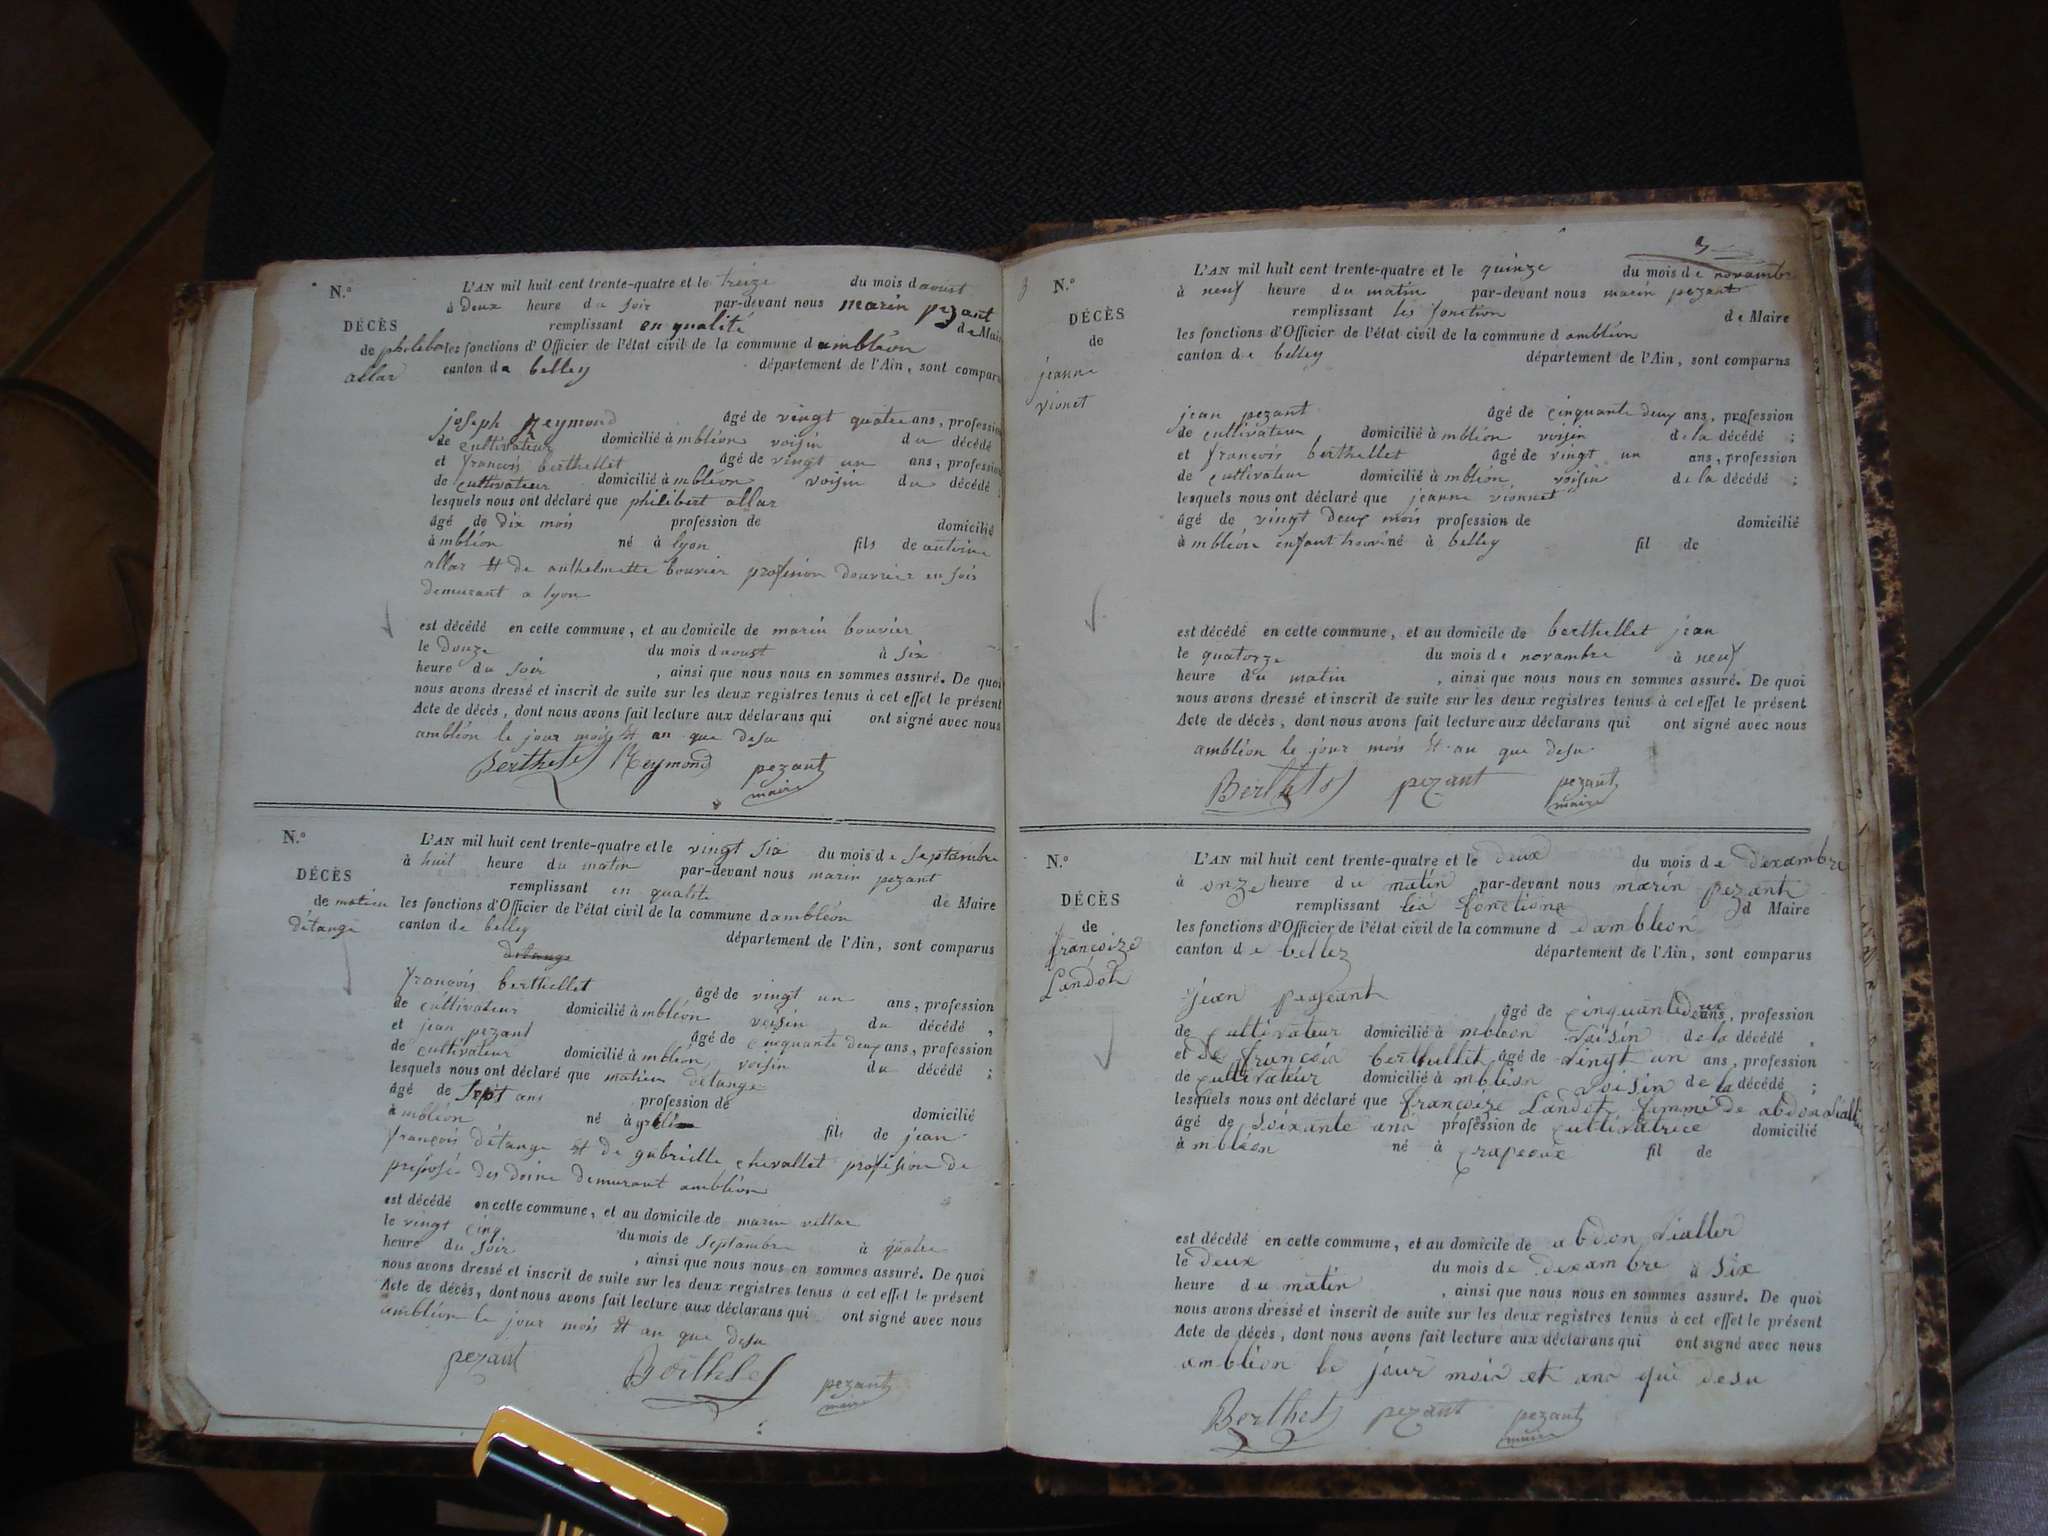 N.º
DÉCÈS
de philiber
allar
L'AN mil huit cent trente-quatre et le treize du mois d aoust
à deux heure du soir par-devant nous marin pezant
remplissant en qualité de Maire
les fonctions d'Officier de l'état civil de la commune d ambléon
canton de belley département de l'Ain, sont comparus
joseph Reymond âgé de vingt quatre ans, profession
de cultivateur domicilié à mbléon voisin du décédé
et françois berthellet âgé de vingt un ans, profession
de cultivateur domicilié à mbléon voisin du décédé ;
lesquels nous ont déclaré que philibert allar
âgé de dix mois profession de domicilié
à mbléon né à lyon fils de antoine
allar et de anthelmette bouvier profesion douvrier en sois
demurant a lyon
est décédé en cette commune, et au domicile de marin bouvier
le douze du mois daoust à six
heure du soir , ainsi que nous nous en sommes assuré. De quoi
nous avons dressé et inscrit de suite sur les deux registres tenus à cet effet le présent
Acte de décès, dont nous avons fait lecture aux déclarans qui ont signé avec nous
ambléon le jour mois et an que desu
Berthelet Reymond pezant
maire
N.º
DÉCÈS
de matieu
détange
L'AN mil huit cent trente-quatre et le vingt six du mois de septambre
à huit heure du matin par-devant nous marin pezant
remplissant en qualité de Maire
les fonctions d'Officier de l'état civil de la commune d ambléon
canton de belley département de l'Ain, sont comparus
détange
françois berthellet âgé de vingt un ans, profession
de cultivateur domicilié à mbléon voisin du décédé ,
et jean pezant âgé de cinquante deux ans, profession
de cultivateur domicilié à mbléon voisin du décédé ;
lesquels nous ont déclaré que matieu détange
âgé de sept ans profession de domicilié
à mbléon né à fils de jean
françois détange et de gabrielle chevallet profesion de
préposé des doine demurant ambléon
est décédé en cette commune, et au domicile de marin vettar
le vingt cinq du mois de septambre à quatre
heure du soir , ainsi que nous nous en sommes assuré. De quoi
nous avons dressé et inscrit de suite sur les deux registres tenus à cet effet le présent
Acte de décès, dont nous avons fait lecture aux déclarans qui ont signé avec nous
ambléon le jour mois et an que desu
pezant Berthelet pezant
maire
3
N.º
DÉCÈS
de
jeanne
vionet
L'AN mil huit cent trente-quatre et le quinze du mois de novambre
à neuf heure du matin par-devant nous marin pezant
remplissant les fonction de Maire
les fonctions d'Officier de l'état civil de la commune d ambléon
canton de belley département de l'Ain, sont comparus
jean pezant âgé de cinquante deux ans, profession
de cultivateur domicilié à mbléon voisin de la décédé ;
et françois berthellet âgé de vingt un ans, profession
de cultivateur domicilié à mbléon voisin de la décédé ;
lesquels nous ont déclaré que jeanne vionnet
âgé de vingt deux mois profession de domicilié
à mbléon enfant trouvé né à belley fil de
est décédé en cette commune, et au domicile de berthellet jean
le quatorze du mois de novambre à neuf
heure du matin , ainsi que nous nous en sommes assuré. De quoi
nous avons dressé et inscrit de suite sur les deux registres tenus à cet effet le présent
Acte de décès, dont nous avons fait lecture aux déclarans qui ont signé avec nous
ambléon le jour mois et an que desu
Berthelet pezant pezant
maire
N.º
DÉCÈS
de
françoize
Landot
L'AN mil huit cent trente-quatre et le deux du mois de dexambre
à onze heure du matin par-devant nous marin pezant
remplissant les fonctions d Maire
les fonctions d'Officier de l'état civil de la commune d dambleon
canton de bellez département de l'Ain, sont comparus
jean pezeant âgé de cinquante deux ans, profession
de cultivateur domicilié à mbleon voisin de la décédé ,
et de françois berthellet âgé de vingt un ans, profession
de cultivateur domicilié à mbléon voisin de la décédé ;
lesquels nous ont déclaré que françoize Landot femme de abdon viallet
âgé de soixante ans profession de cultivatrice domicilié
à mbléon né à crapeoux fil de
est décédé en cette commune, et au domicile de abdon viallet
le deux du mois de dexambre à six
heure du matin , ainsi que nous nous en sommes assuré. De quoi
nous avons dressé et inscrit de suite sur les deux registres tenus à cet effet le présent
Acte de décès, dont nous avons fait lecture aux déclarans qui ont signé avec nous
ambléon le jour mois et ans que desu
Berthelet pezant pezant
maire